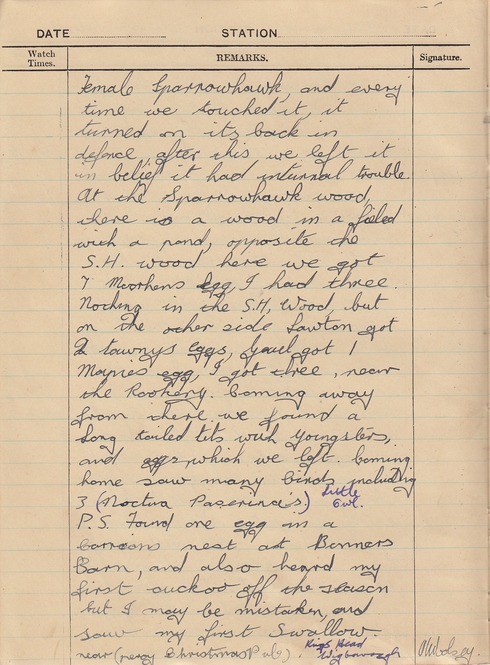 DATE STATION
Watch Times. REMARKS. Signature.
Female Sparrowhawk, and every
time we touched it, it
turned on its back in
defence, after this we left it
in belief it had internal trouble.
At the Sparrowhawk wood,
there is a wood in a field
with a pond, opposite the
S.H. wood here we got
7 Moorhens egg, I had three.
Nothing in the S.H. Wood, but
on the other side Lawton got
2 tawnys eggs, got 1
Magpies egg, I got three, near
the Rookery. Coming away
from there we found a
long tailed tits with youngsters,
and eggs which we left. Coming
home saw many birds including
3 (Noctua Paserina's.) Little Owl.
P.S. Found one egg in a
carrions nest at Bonners
Barn, and also heard my
first cuckoo off the season
but I may be mistaken, and
saw my first Swallow
near (percy Christmas Pub). Kings Head Wigborough